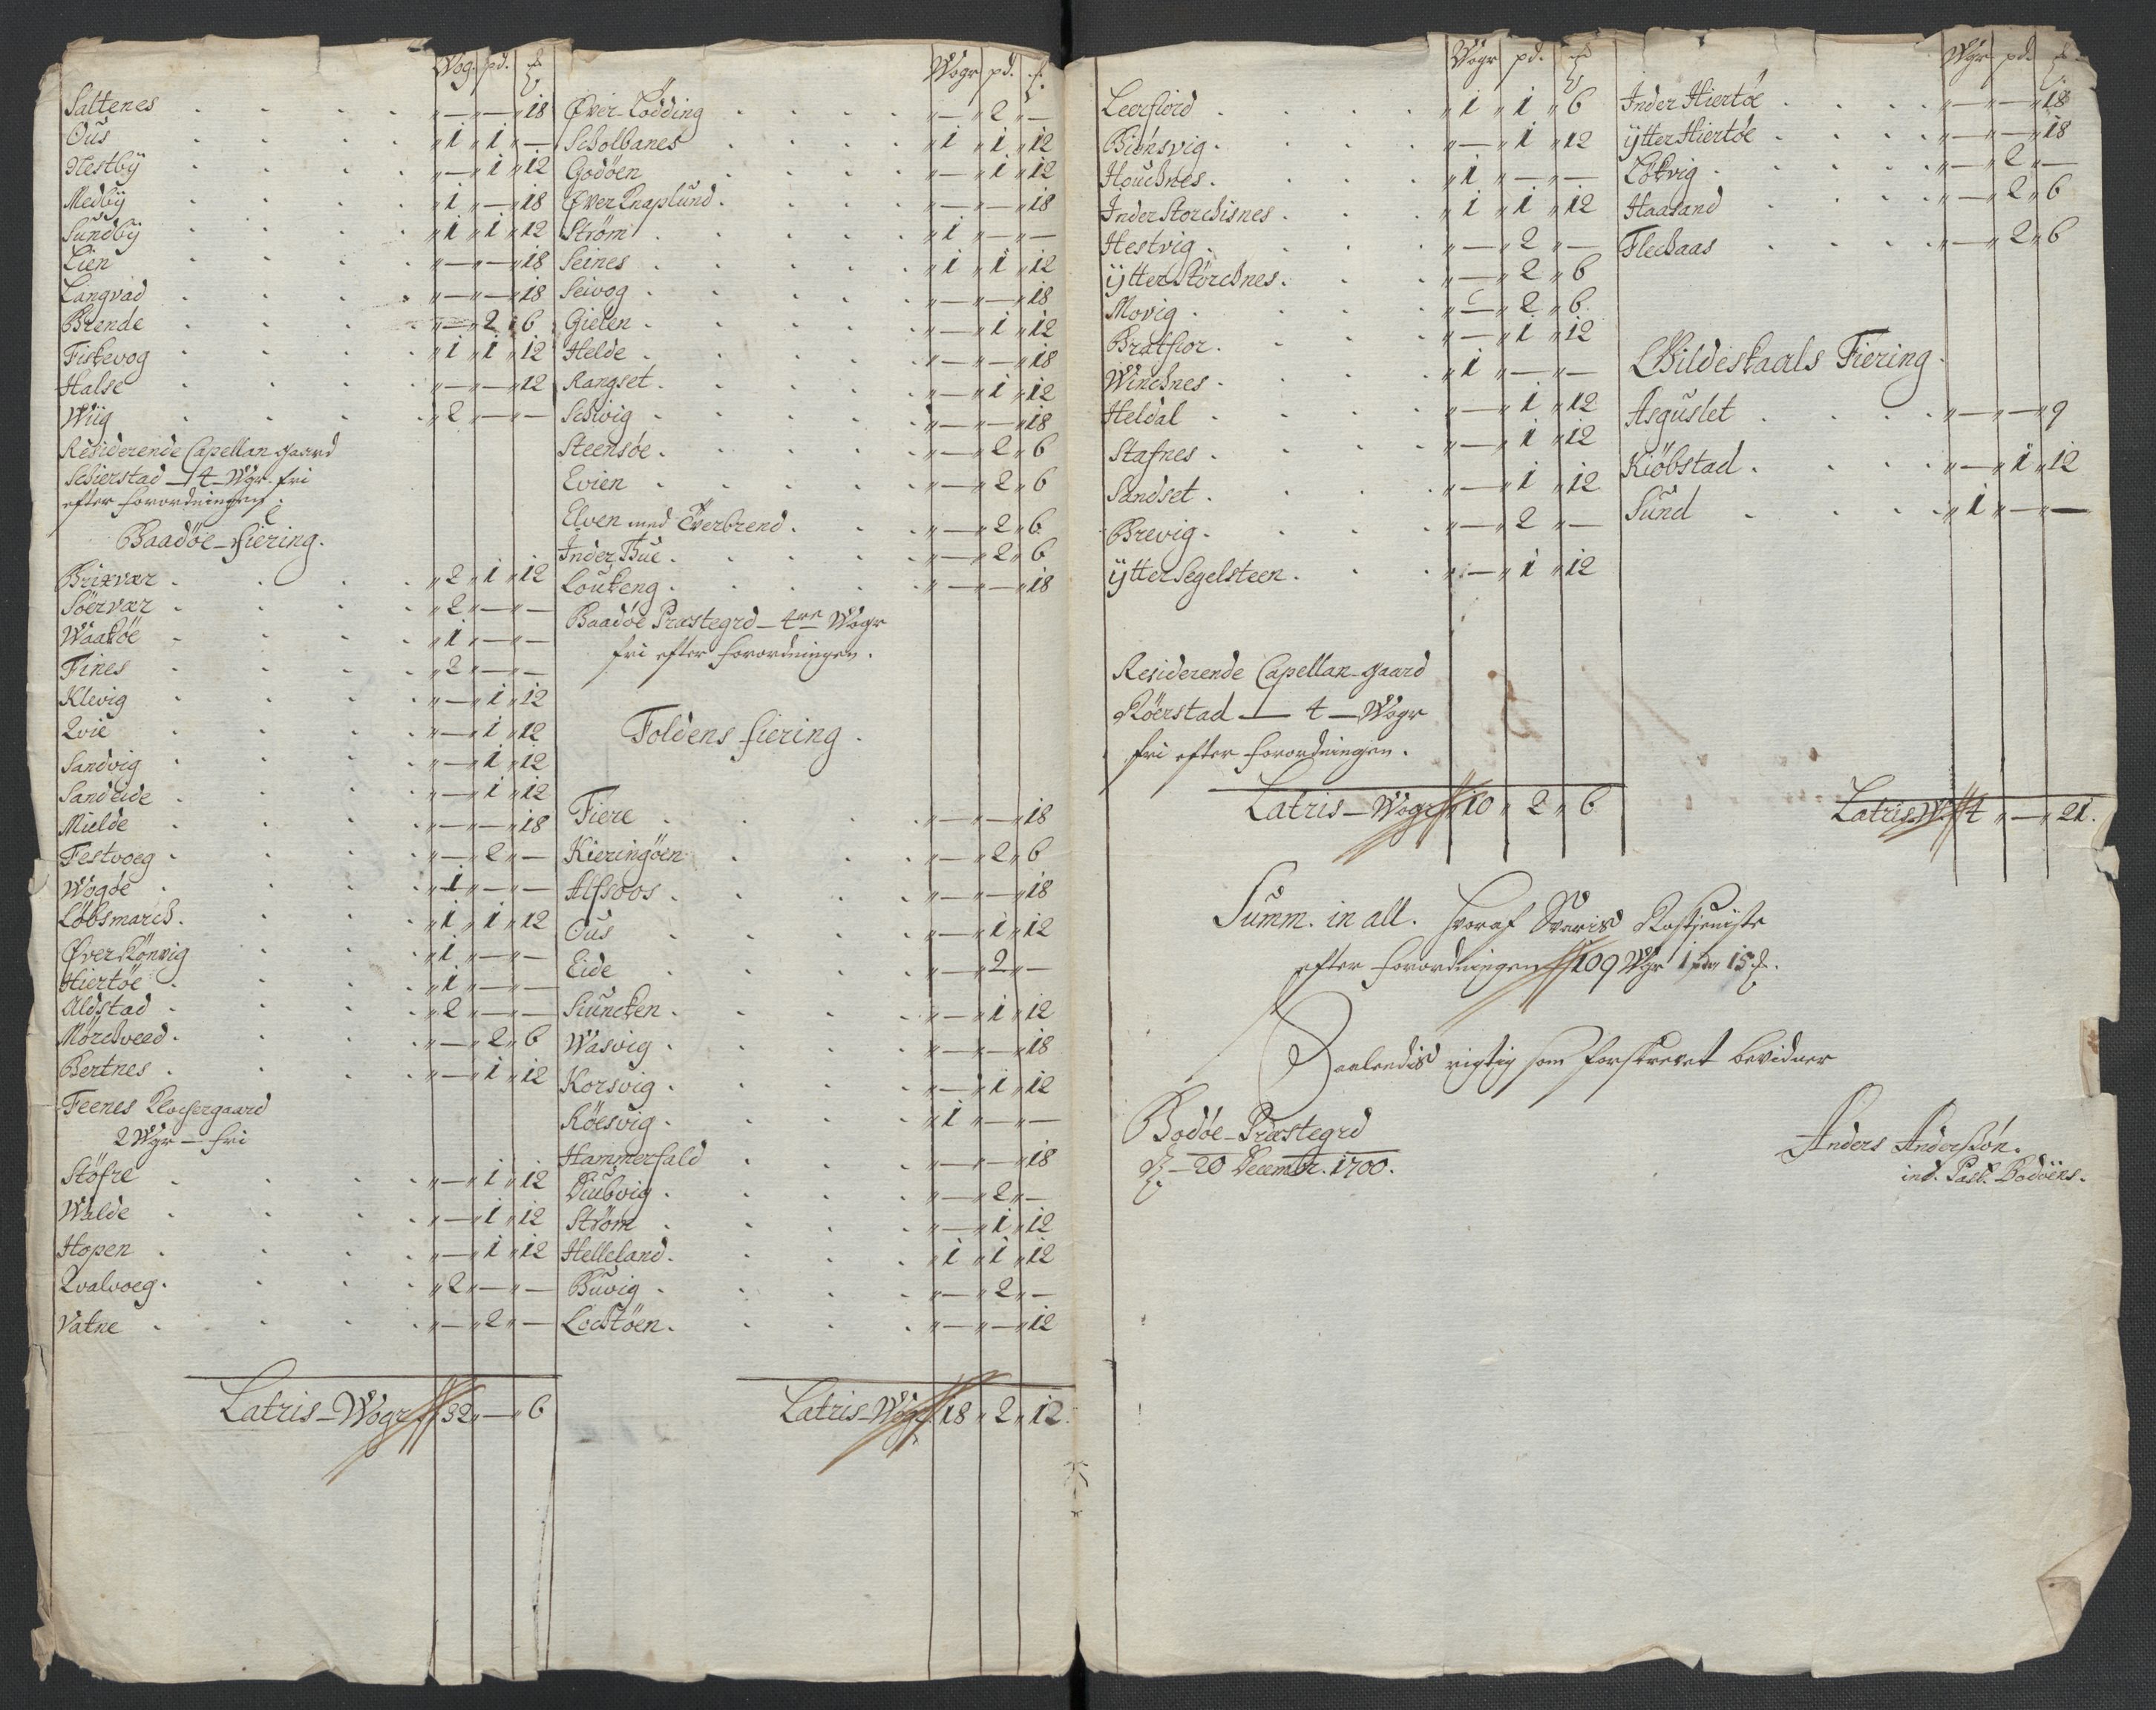 Wog. pd. 
Saltenes . . . . „—„—„18
Ous . . . . „1„1„—
Nestbÿ . . . . „—„1„12
Medbÿ . . . . „1„—„18
Sundbÿ . . . . „1„1„12
Lien . . . . „—„—„18
Langvad . . . . „—„—„18
Brende . . . . „—„2„6
Fiskevog . . . . „1„1„12
Halse . . . . „—„—„12
Wiig . . . . „2„—„—
Residerende Capellan gaard
Schierstad — 4 — Wgr fri
efter forordningen.
Baadöe–fiering.
Brixvær . . . . „2„1„12
Söervær . . . . „2„—„—
Waaköe . . . . „1„—„—
Fines . . . . „2„—„—
Klevig . . . . „—„1„12
Qvie . . . . „—„1„12
Sandvig . . . . „—„1„12
Sandeide . . . . „—„1„12
Mielde . . . . „—„—„18
Festvoeg . . . . „—„2„—
Wogöe . . . . „1„—„—
Löbsmarch . . . . „1„1„12
Øver Rönvig . . . . „1„—„—
Hiertöe . . . . „1„—„—
Aldstad . . . . „2„—„—
Mörchveed . . . . „—„2„6
Bertnes . . . . „—„1„12
Feenes Klochergaard
2 Wgr — fri
Stöfre . . . . „—„1„12
Walde . . . . „—„1„12
Hopen . . . . „—„1„12
Qvalvoeg . . . . „2„—„—
Vatne . . . . „—„2„—
Latris–Wogr 32„—„6
Wogr pd. 
Øver–Lödding . . . . „—„2„—
Scholbanes . . . . „1„1„12
Godöen . . . . „—„1„12
Øver Knaplund . . . . „—„—„18
Ström . . . . „1„—„—
Seines . . . . „1„1„12
Seivog . . . . „—„—„18
Gielen . . . . „—„1„12
Helde . . . . „—„—„18
Rangset . . . . „—„1„12
Schivig . . . . „—„—„18
Steensöe . . . . „—„2„6
Evien . . . . „—„2„6
Elven med Överbrend . . . „—„2„6
Inder Bue . . . . „—„2„6
Loukeng . . . . „—„—„18
Baadöe Præstegrd — 4re Wogr
fri efter forordningen.
Foldens fiering.
Fiere . . . . „—„—„18
Kieringöen . . . . „—„2„6
Alfsoos . . . . „—„—„18
Ous . . . . „—„1„12
Eide . . . . „—„2„—
Siuncken . . . . „—„1„12
Wasvig . . . . „—„—„18
Korsvig . . . . „—„1„12
Röesvig . . . . „1„—„—
Hammerfald . . . . „—„—„18
Diubvig . . . . „—„2„—
Ström . . . . „—„1„12
Helleland . . . . „1„1„12
Buvig . . . . „—„2„—
Lochtöen . . . . „—„—„12
Latris–Wogr 18„2„12.
Wogr pd. 
Leerfiord . . . . „1„1„6
Biönsvig . . . . „—„1„12
Houchnes . . . . „1„—„—
Inder Storchisnes . . . „1„1„12
Hestvig . . . . „—„2„—
ÿtter Störchnes . . . „—„2„6
Movig . . . . „—„2„6
Bratfior . . . . „—„1„12
Winchnes . . . . „1„—„—
Heldal . . . . „—„1„12
Stafnes . . . . „—„1„12
Sandset . . . . „—„1„12
Brevig . . . . „—„2„—
ÿtter Segelsteen . . . „—„1„12
Residerende Capellan–gaard
Röerstad — 4 — Wogr
fri efter forordningen.
Latris–Wogr 10„2„6
Wgr pd. 
Inder Hiertöe . . . . „—„—„18
ÿtter Hiertöe . . . . „—„—„18
Lökvig . . . . „—„2„—
Haasand . . . . „—„2„6
Flechaas . . . . „—„2„6
Gildeskaals Fiering.
Asguslet . . . . „—„—„9
Kiöbstad . . . . „—„1„12
Sund . . . . „1„—„—
Latris W. 4„—„21.
Summ. in all. hvoraf Svaris Rostjeniste
efter forordningen 109 Wgr 1 pdr 15
Saaledis rigtig som forskrevet bevidner
Bodöe–Præstegrd
d. 20 Decembr. 1700.
Anders Anderssön.
ind. Past. Bodöens.